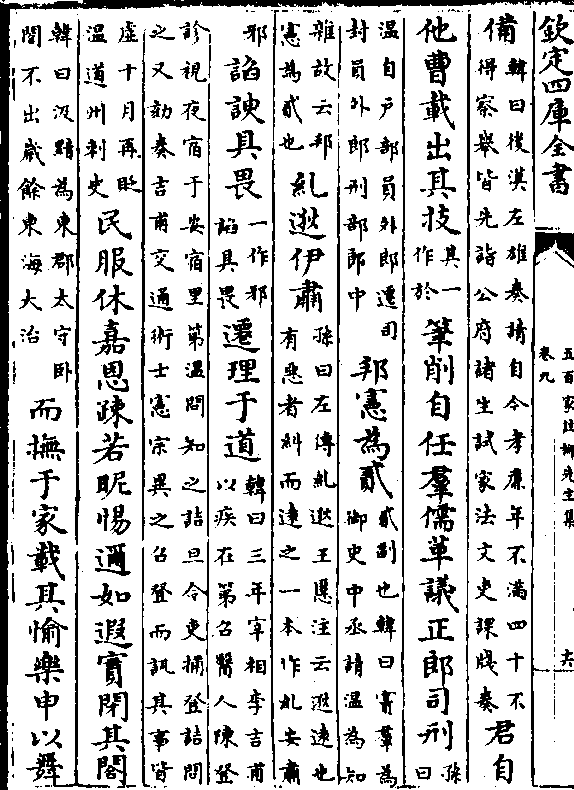 欽定四庫全書
五百家註柳先生集
卷九
六
備韓曰後漢左雄奏請自今孝廉年不滿四十不
得察舉皆先詣公府諸生試家法文吏課牋奏君自
他曹載出其技其一
作於筆削自任羣儒革議正郎司刑孫曰
温自戶部員外郎遷司
封員外郎刑部郎中邦憲為貳貳副也韓曰竇羣為
御史中丞請温為知
雜故云邦
憲為貳也糺逖伊肅孫曰左傳糺逖王慝注云逖遠也
有惡者糾而遠之一本作糺安肅
邪諂諛具畏一作邪
諂具畏遷理于道韓曰三年宰相李吉甫
以疾在第召醫人陳登
診視夜宿于安宿里第温問知之詰旦令吏捕登詰問
之又劾奏吉甫交通術士憲宗異之召登而訊其事皆
虛十月再貶
温道州刺史民服休嘉恩疎若昵惕邇如遐實閉其閤
韓曰汲黯為東郡太守卧
閤不出歲餘東海大治而撫于家載其愉樂申以舞